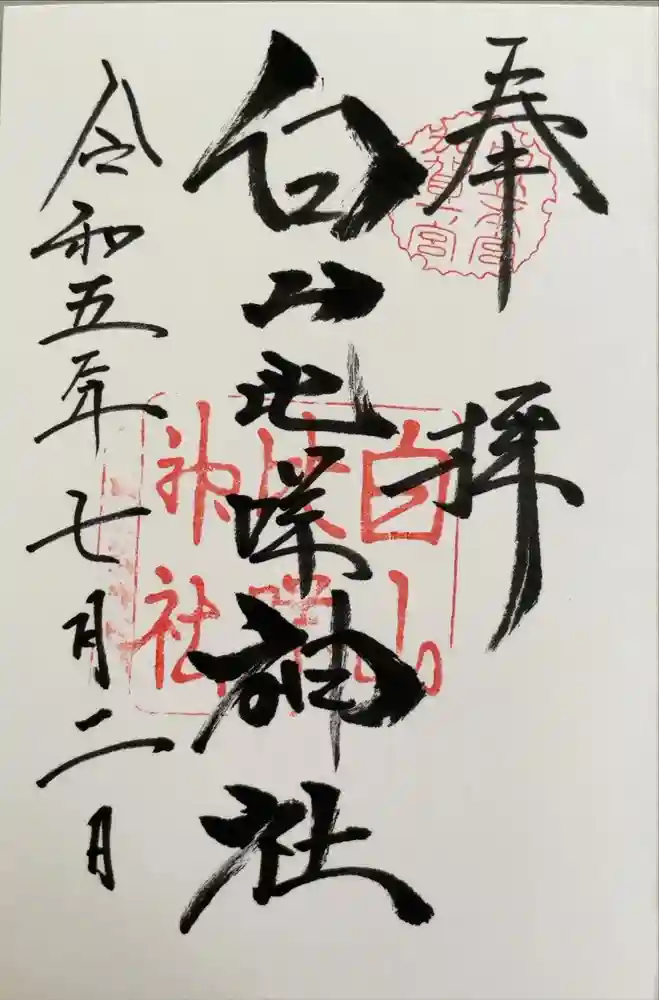 奉拝
白山比咩神社
令和五年七月二日
白山
比咩
神社
加賀一宮